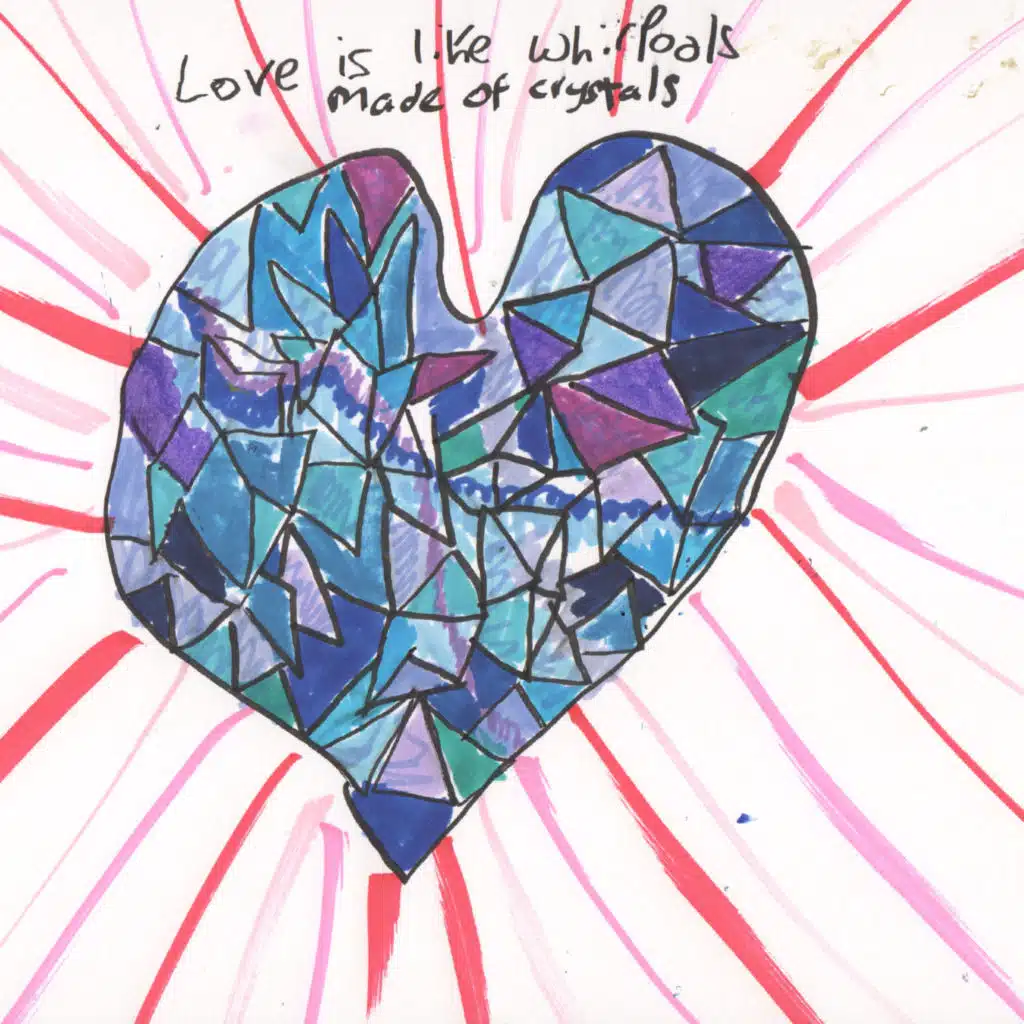 Love is like whirlpools
made of crystals